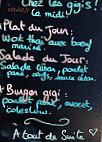 chez les gigi's !
le midi !
Plat du Jour :
Wok thaï avec boeuf
mariné.
Salade du Jour :
Salade César, poulet
pané, œufs, sauce César.
+ Burger gigi :
poulet pané, sweet,
coleslaw.
A tout de Suite ♡